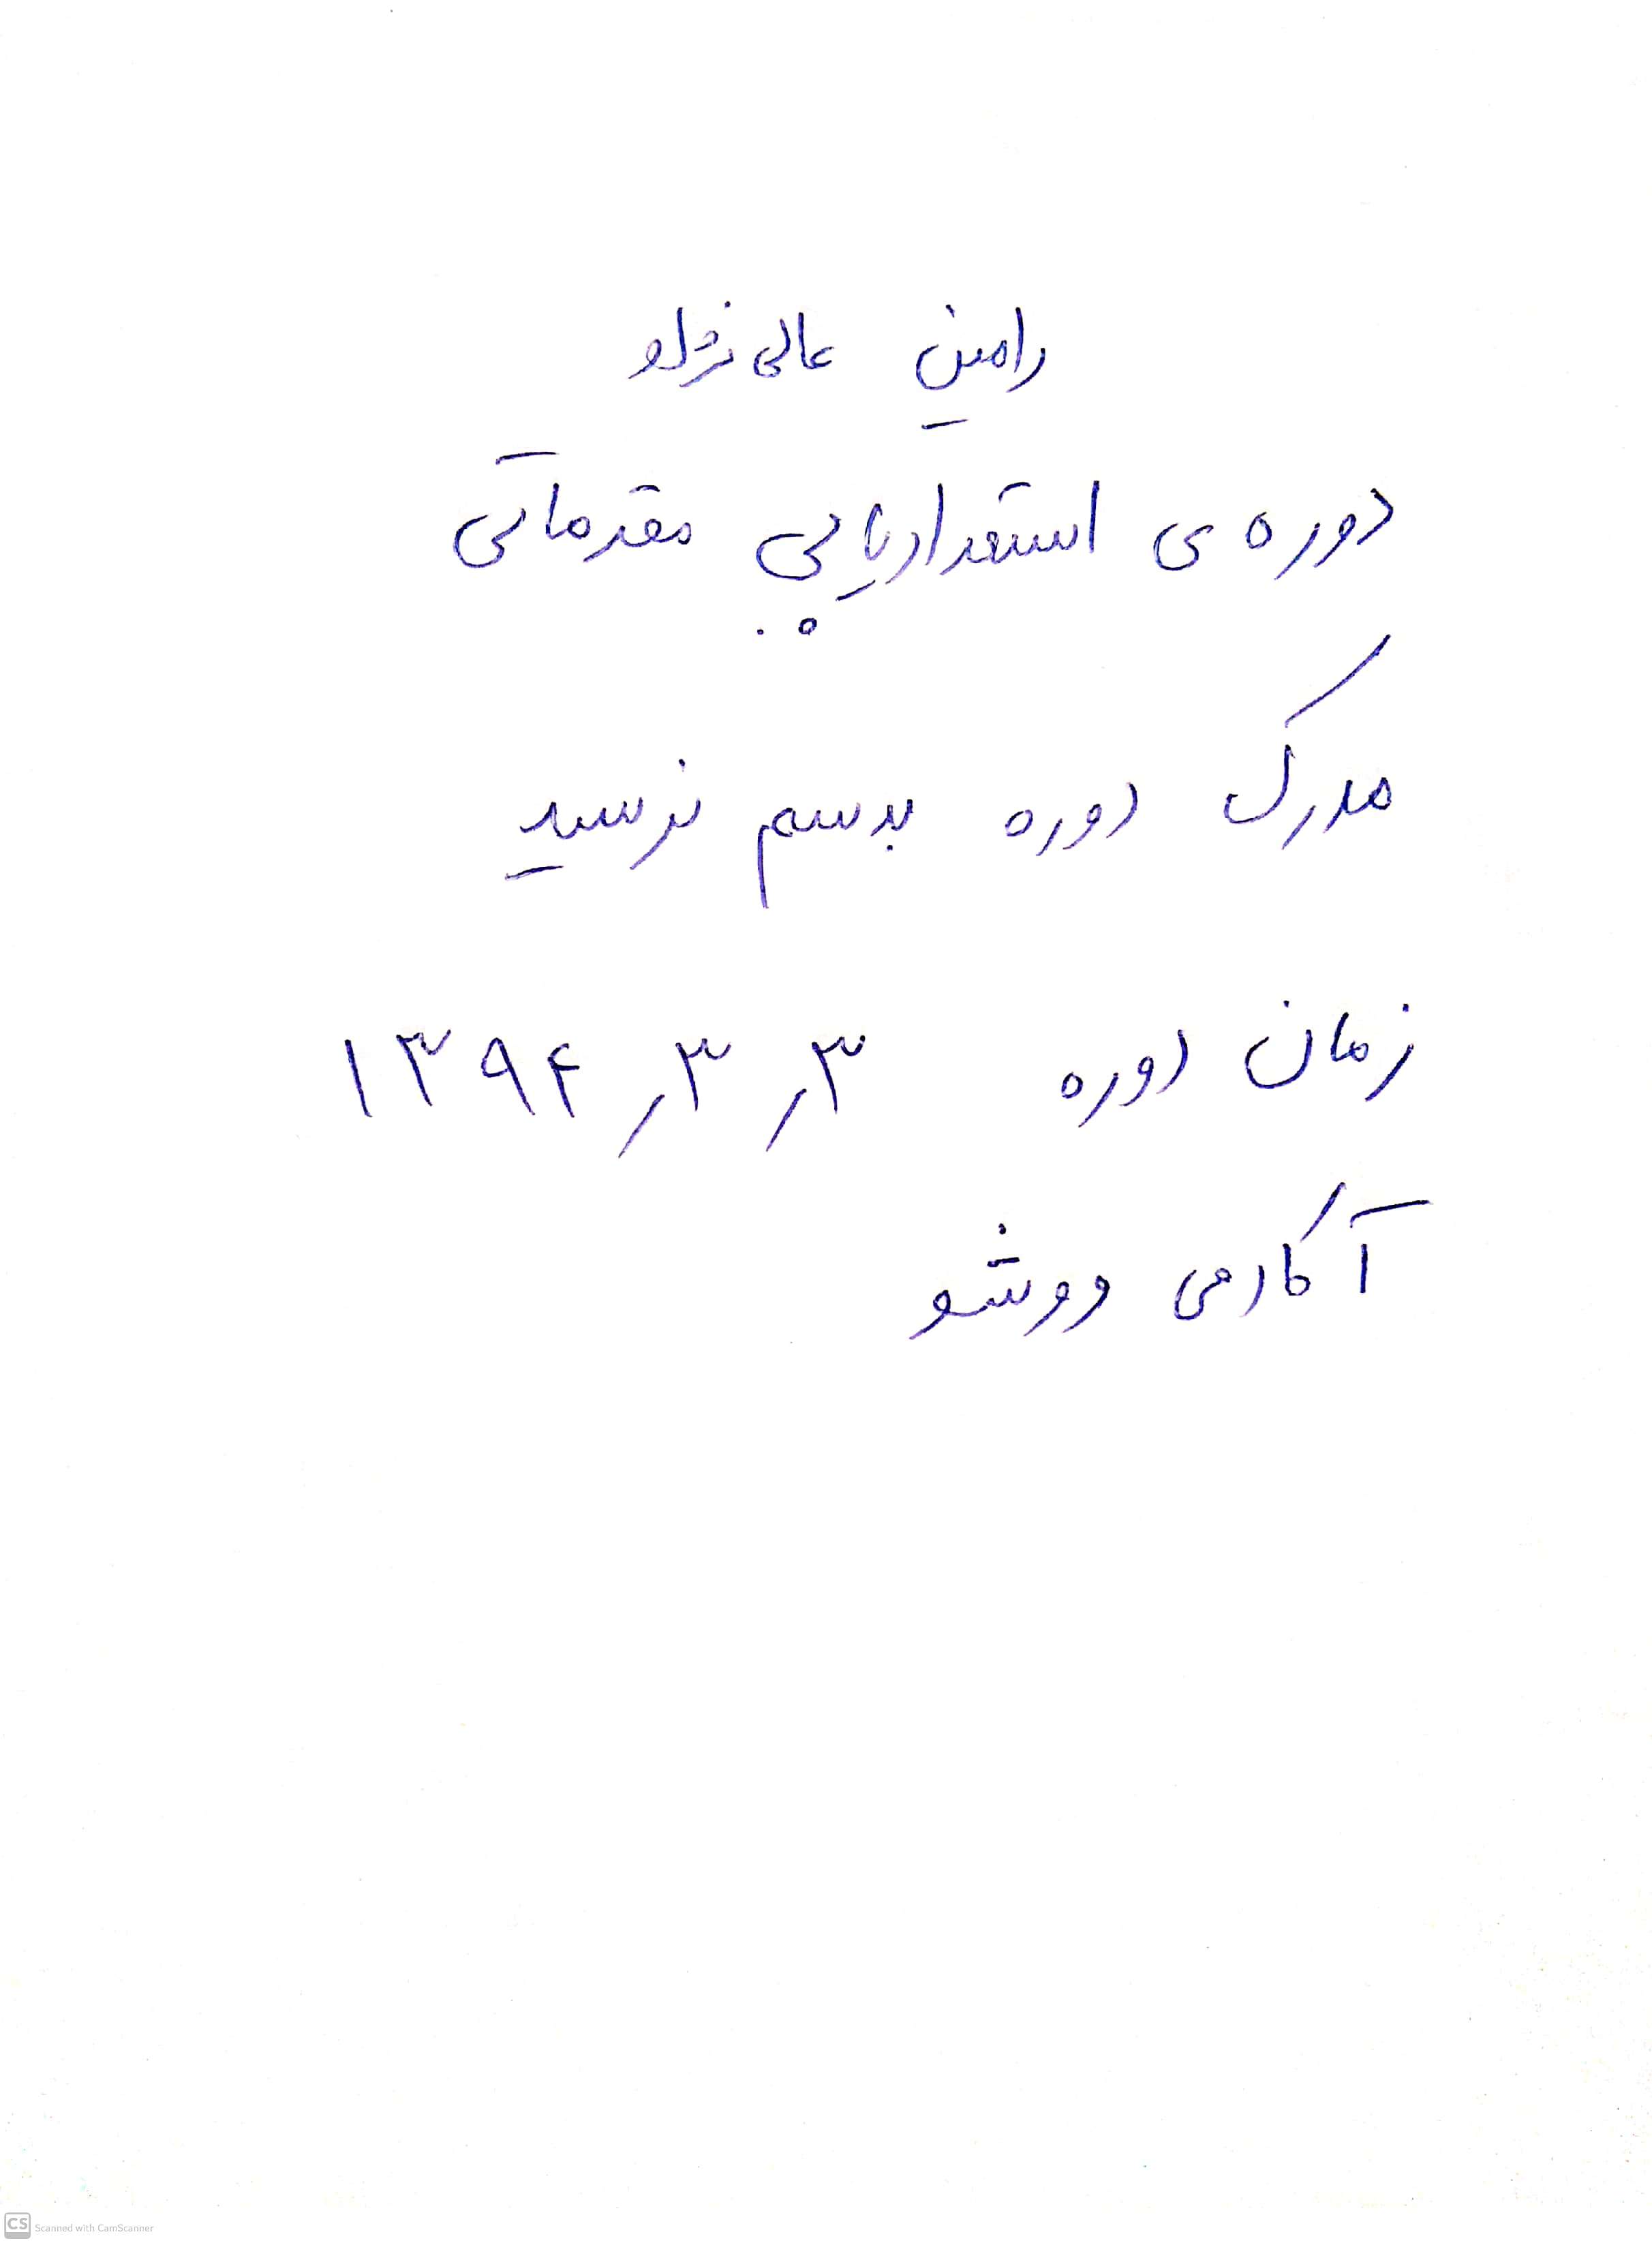 رامین عالی نژاد
دوره ی استعدادیابی مقدماتی
مدرک دوره بدستم نرسید
زمان دوره ۳٫۳٫۱۳۹۴
آکادمی ووشو
CS Scanned with CamScanner